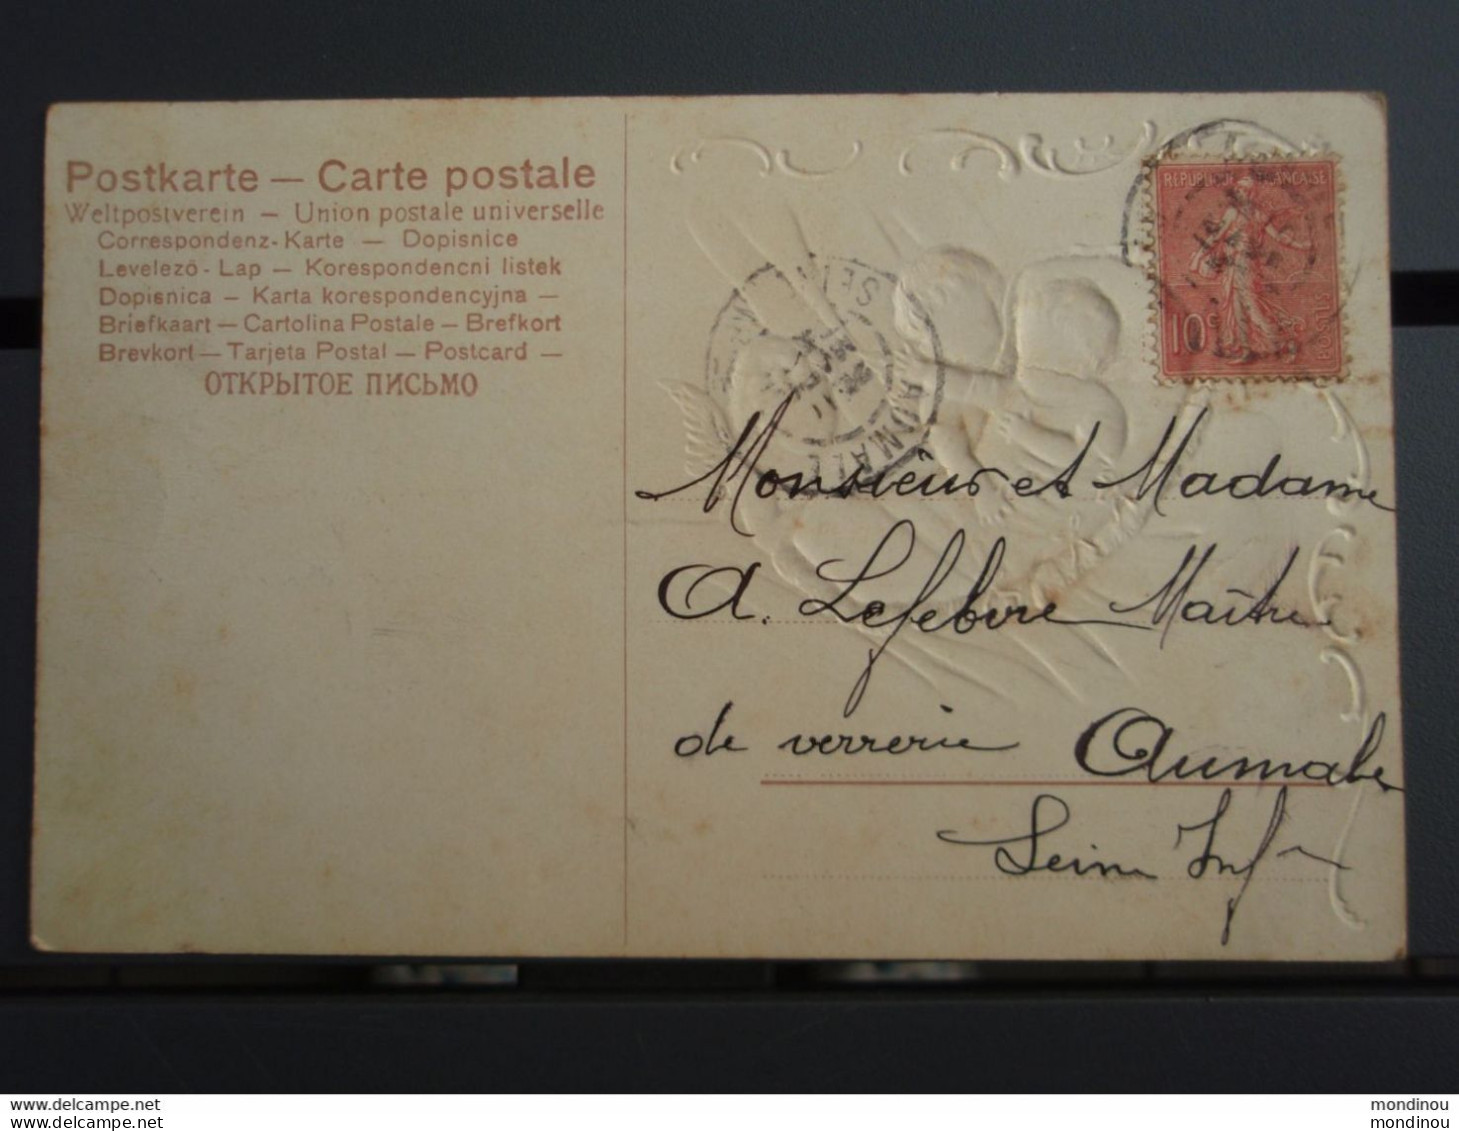 Postkarte — Carte postale
Weltpostverein — Union postale universelle
Correspondenz-Karte — Dopisnice
Levelezö-Lap — Korespondencni listek
Dopisnica — Karta korespondencyjna —
Briefkaart — Cartolina Postale — Brefkort
Brevkort — Tarjeta Postal — Postcard —
ОТКРЫТОЕ ПИСЬМО
REPUBLIQUE FRANÇAISE
10c
POSTES
AUMALE
SEINE
Monsieur et Madame
A. Lefebvre Maître
de verrerie Aumale
Seine Infre
www.delcampe.net
www.delcampe.net
mondinou
mondinou